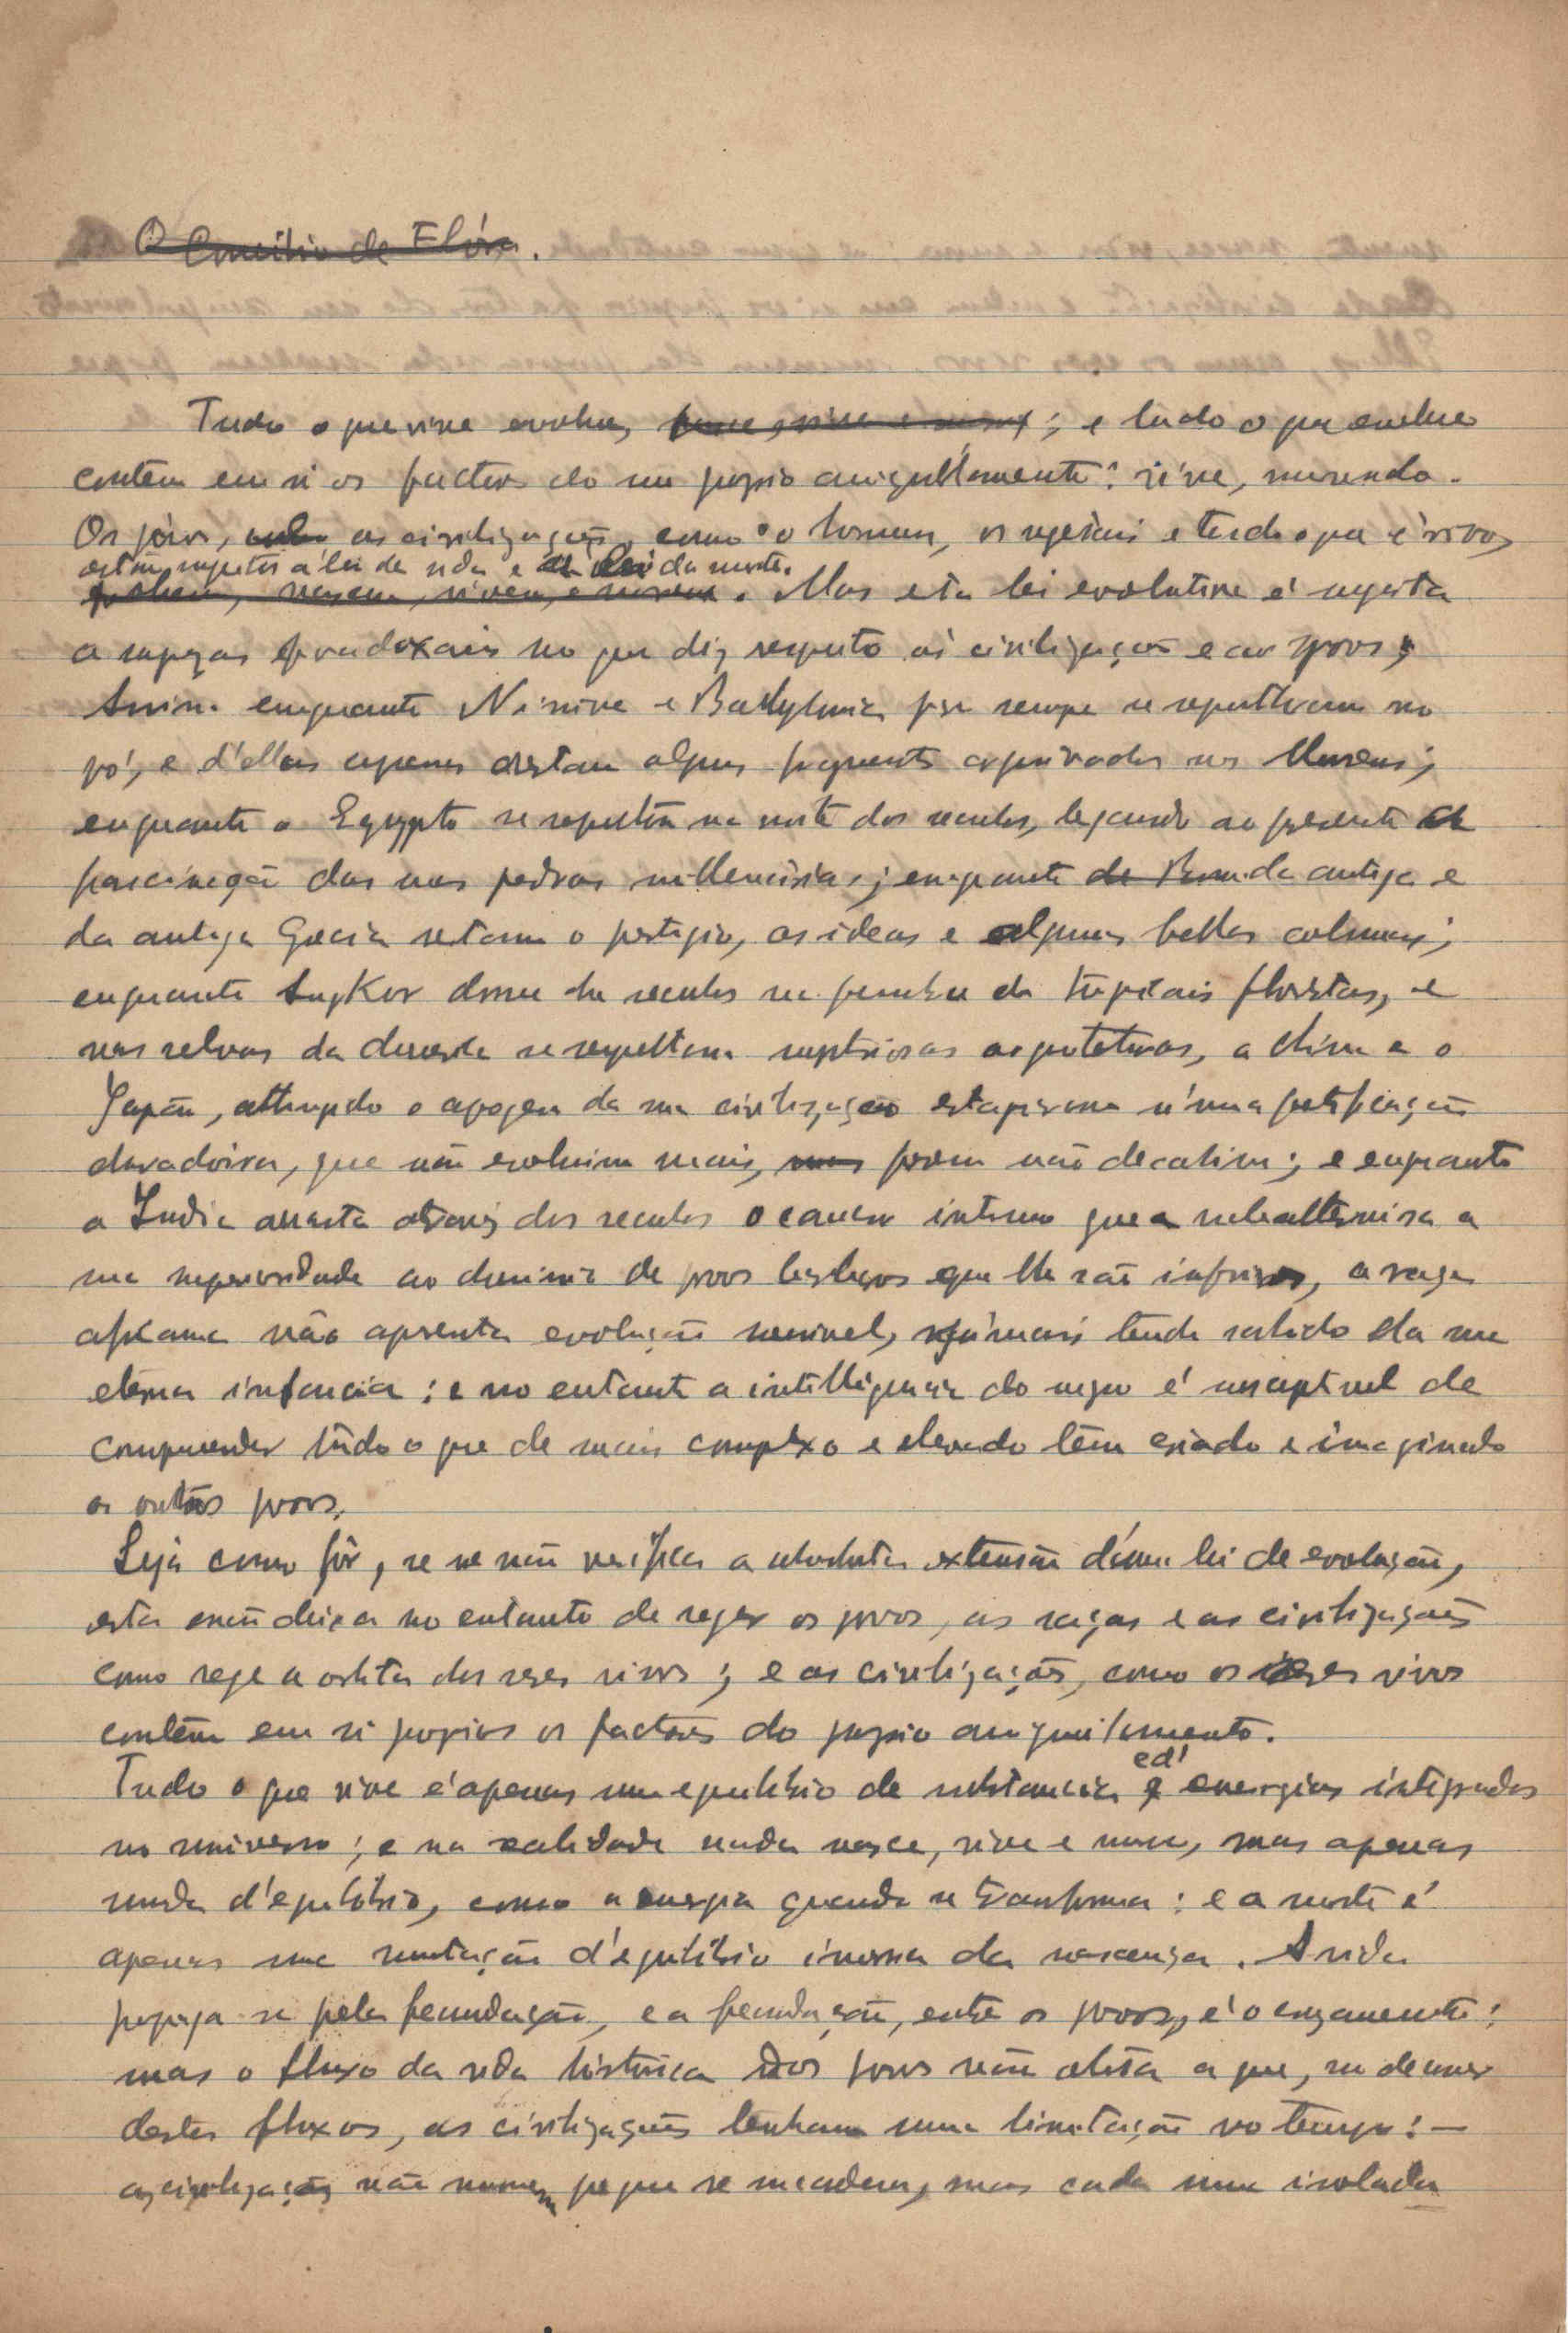 O Concilio de Elvira.
Tudo o que vive evolue, nasce, vive e morre; e tudo o que evolue
contém em si os factores do seu proprio aniquillamento: vive, morrendo.
Os povos, as civilizações, como o homem, os vegetais e tudo o que é vivo,
estão sujeitos á lei da vida e á lei da morte.
evoluem, nascem, vivem, e morrem. Mas esta lei evolutiva é sujeita
a suprezas paradoxais no que diz respeito ás civilizações e aos povos;
Assim. enquanto Ninive e Babylonia para sempre se sepultaram no
pó, e d'ellas apenas restam alguns fragmentos arquivados nos Museus;
enquanto o Egypto se sepultou na noite dos seculos, legando ao presente a
fascinação das suas pedras millenarias; enquanto de Roma da antiga e
da antiga Grecia restam o prestigio, as ideas e algumas bellas colunas;
enquanto Angkor dorme ha seculos na penumbra de tropicais florestas, e
nas selvas da se sepultam misteriosas arquiteturas, a China e o
Japão, attingido o apogeu da sua civilização estagnaram n'uma petrificação
duradoira, que não evoluiu mais, mas porem não decahiu; e enquanto
a India arrasta atravez dos seculos o cancer interno que a subalternisa a
sua superioridade ao dominio de povos que lhe são inferiores, a raça
africana não apresenta evolução sensivel, jámais tendo sahido da sua
eterna infancia: e no entanto a intelligencia do negro é susceptivel de
comprehender tudo o que de mais complexo e elevado têm criado e imaginado
os outros povos.
Seja como fôr, se se não verifica a absoluta extensão d'uma lei de evolução,
esta não deixa no entanto de reger os povos, as raças e as civilizações
como rege a orbita dos seres vivos; e as civilizações, como os seres vivos
contêm em si proprios os factores do proprio aniquilamento.
Tudo o que vive é apenas um equilibrio de substancia e d' energias integradas
no universo; e na realidade nada nasce, vive e morre, mas apenas
muda d'equilibrio, como a energia quando se transforma: e a morte é
apenas uma mutação d'equilibrio inversa da nascença. A vida
propaga-se pela fecundação, e a fecundação, entre os povos, é o cruzamento:
mas o fluxo da vida historica dos povos não obsta a que, no decorrer
destes fluxos, as civilizações tenham uma limitação no tempo: —
as civilizações não morrem porque se sucedem, mas cada uma isolada